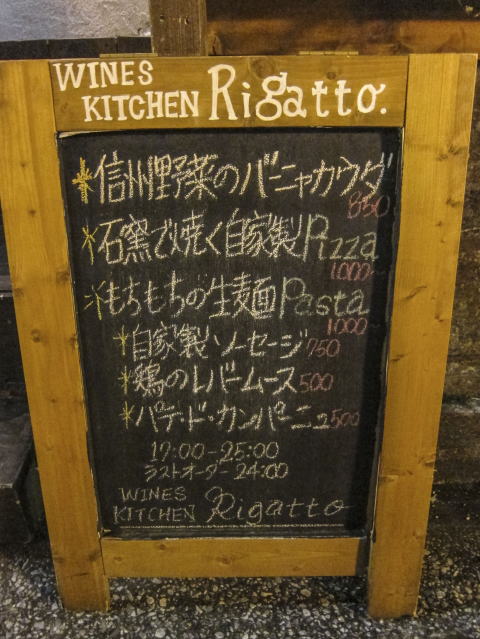 WINES
KITCHEN Rigatto.
*信州野菜のバーニャカウダ
850
*石窯で焼く自家製Pizza
1000~
*もちもちの生麺Pasta
1000~
*自家製ソーセージ 750
*鶏のレバームース 500
*パテ・ド・カンパーニュ 500
17:00-25:00
ラストオーダー 24:00
WINES
KITCHEN Rigatto